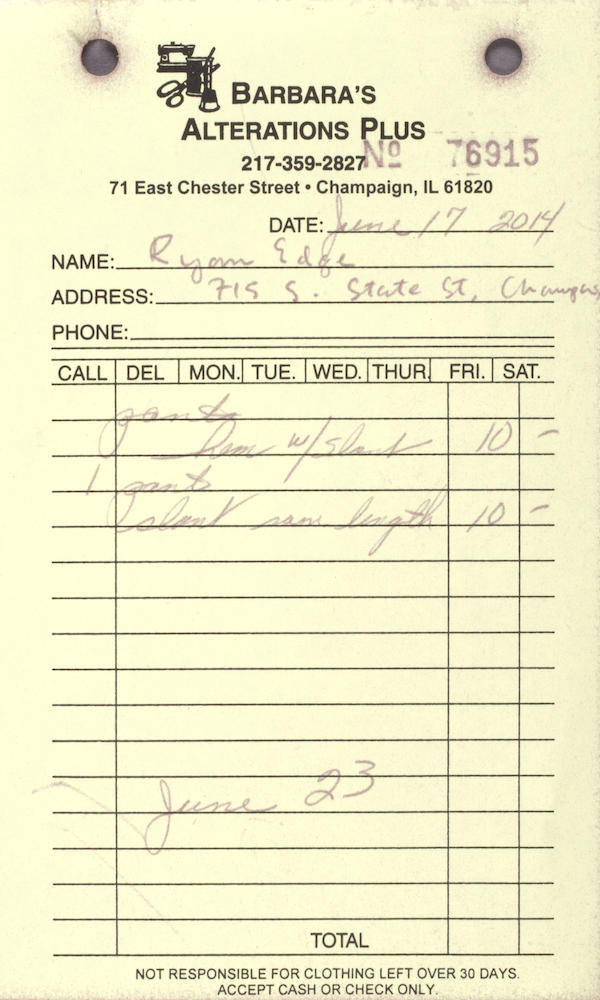 BARBARA'S
ALTERATIONS PLUS
217-359-2827 Nº 76915
71 East Chester Street • Champaign, IL 61820
DATE: June 17 2014
NAME: Ryan Edge
ADDRESS: 715 S. State St,
PHONE:
CALL DEL MON. TUE. WED. THUR. FRI. SAT.
pants
hem w/slant 10 –
1 pants
slant same length 10 –
June 23
TOTAL
NOT RESPONSIBLE FOR CLOTHING LEFT OVER 30 DAYS.
ACCEPT CASH OR CHECK ONLY.